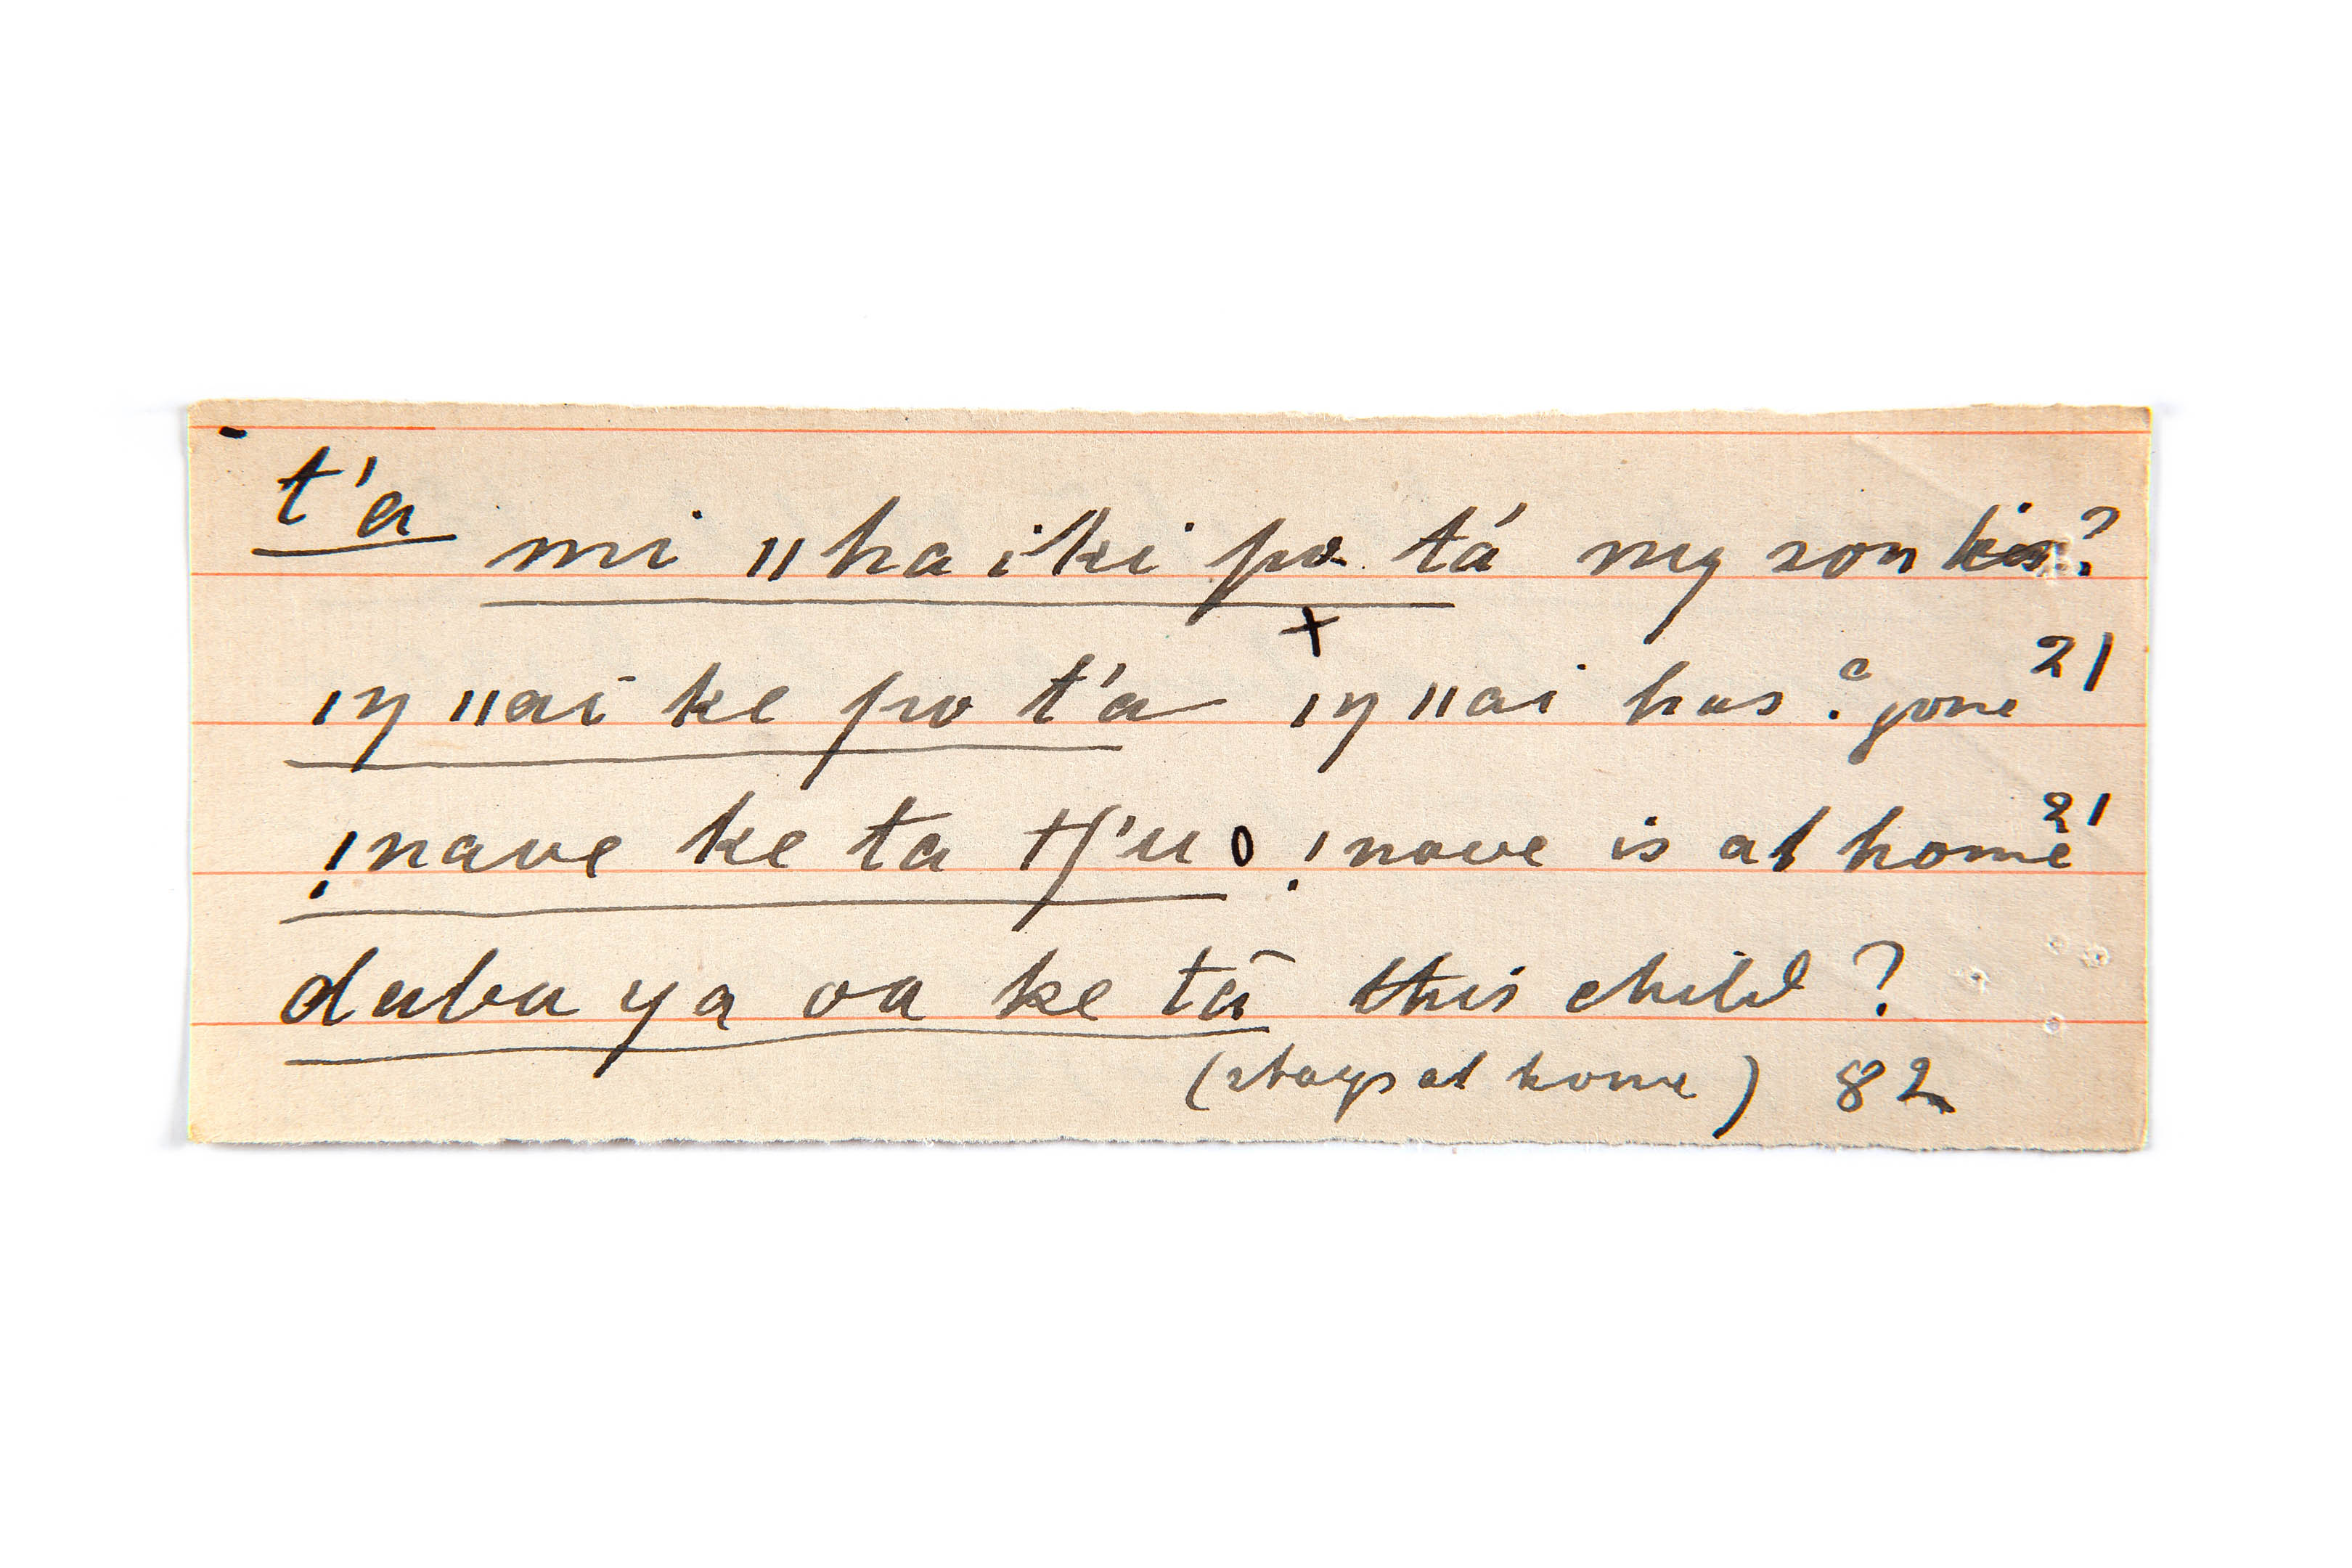 t'a mi ǁha iki po tá my son ?
ıŋ ǁai ke po t'a ıŋ ǁai has ? gone 21
!nave ke ta tʃ'u o !nave is at home 21
daba ya oa ke tā this child ?
(stays at home) 82